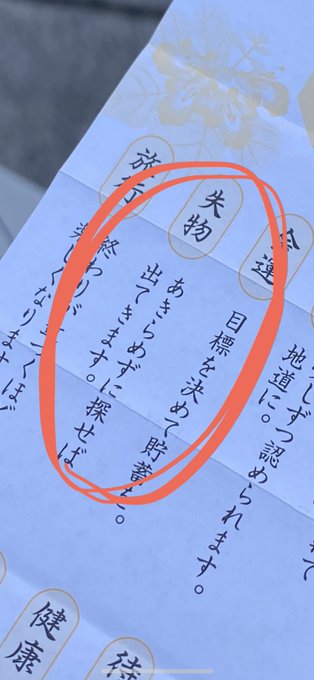 しずつ認められます。
金運
地道に。
目標を決めて貯蓄を。
失物
あきらめずに探せば
出てきます。
旅行
終わりが近づくほど
楽しくなります
健康
待